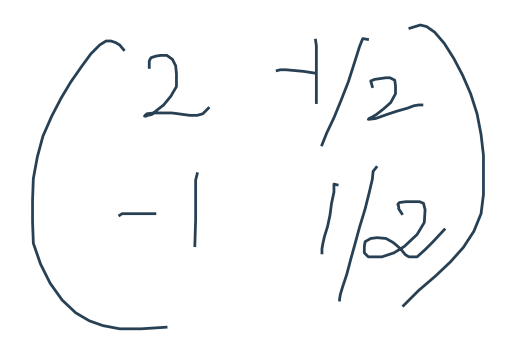 ( 2 -1/2
-1 1/2 )